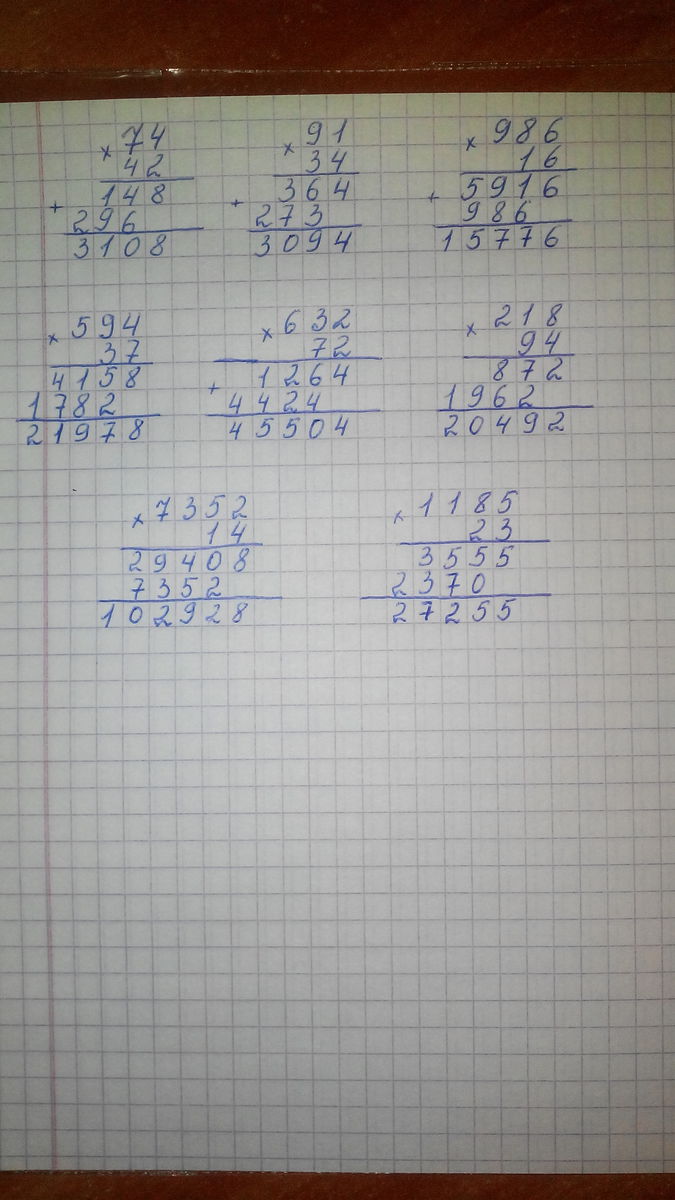 × 74
42
+ 148
296
3108
× 91
34
+ 364
273
3094
× 986
16
+ 5916
986
15776
× 594
37
4158
1782
21978
× 632
72
+ 1264
4424
45504
× 218
94
872
1962
20492
× 7352
14
29408
7352
102928
× 1185
23
3555
2370
27255